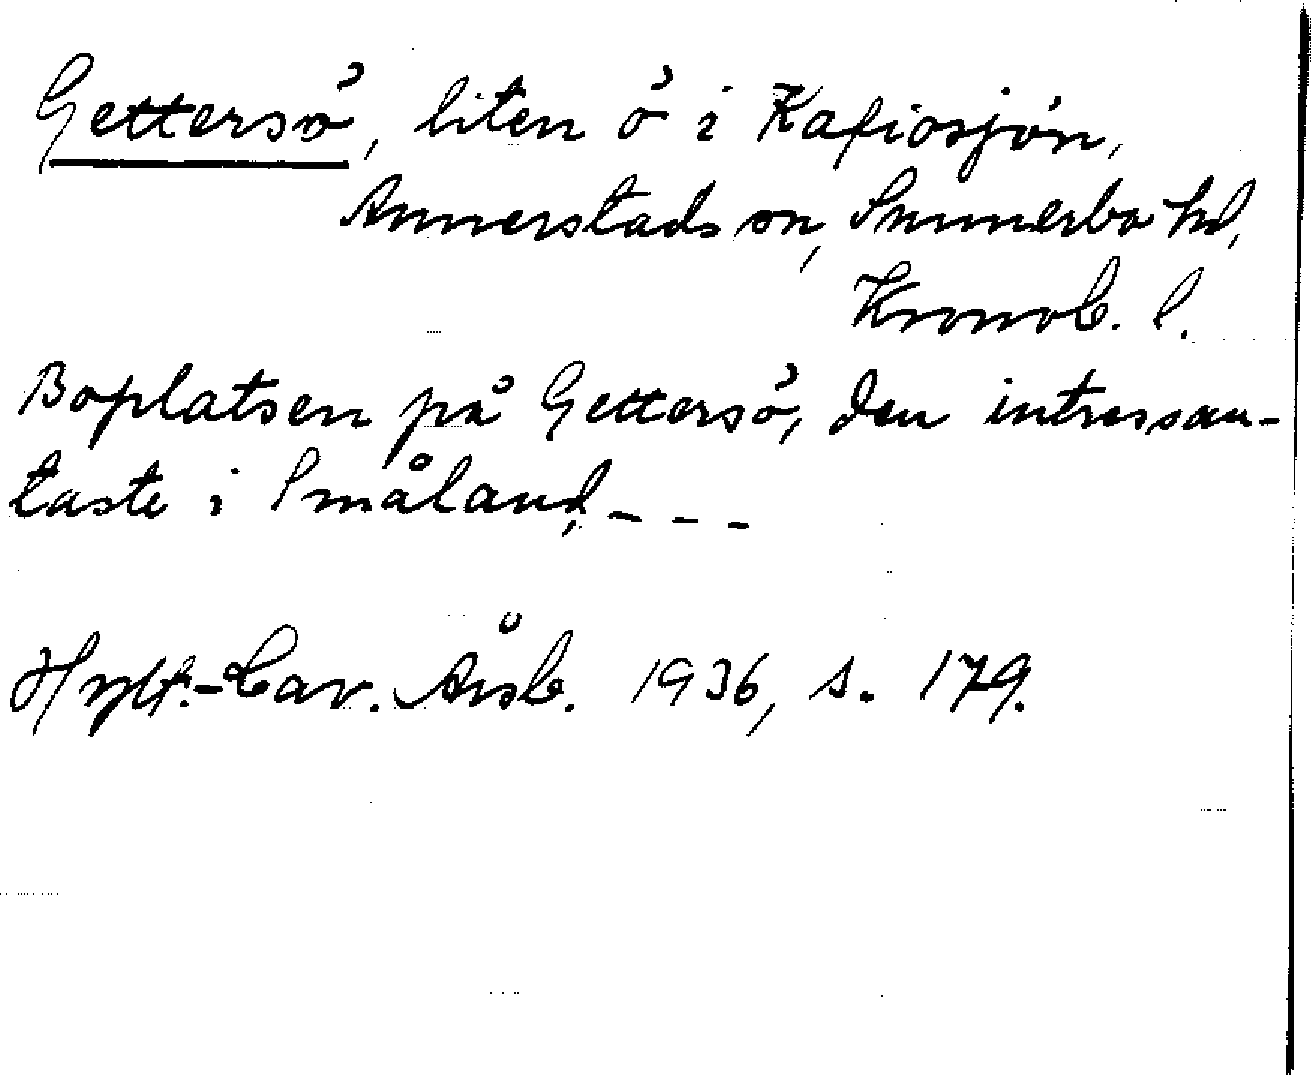 Gettersö, liten ö i Kafjosjön,
Annerstads sn, Sunnerbo hd,
Kronob. l.
Boplatsen på Gettersö, den intressan-
taste i Småland, - - -
Hylt.-Cav. Årsb. 1936, s. 179.